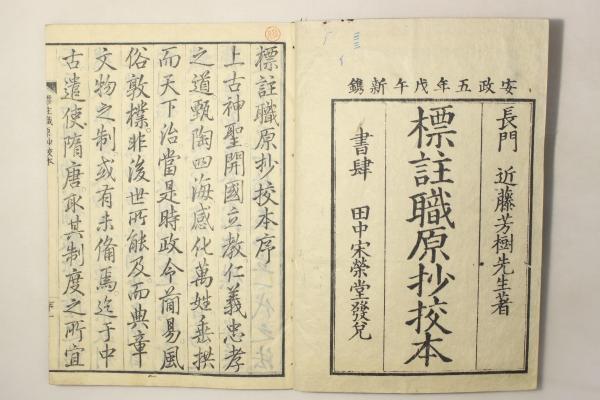 安政五年戊午新鐫
長門 近藤芳樹先生著
標註職原抄挍本
書肆 田中宋榮堂發兌
標註職原抄挍本序
上古神聖開國立教仁義忠孝
之道甄陶四海感化萬姓垂拱
而天下治當是時政令簡易風
俗敦樸。非後世所能及而典章
文物之制或有未備焉。迄于中
古遣使隋唐。取其制度之所宜
標註職原抄挍本